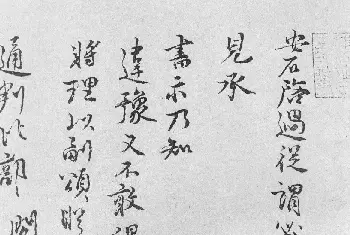 安石啓過從謂必
見承
書示乃知
違豫又不敢謁
將理以副頌睠
通判比部 閤